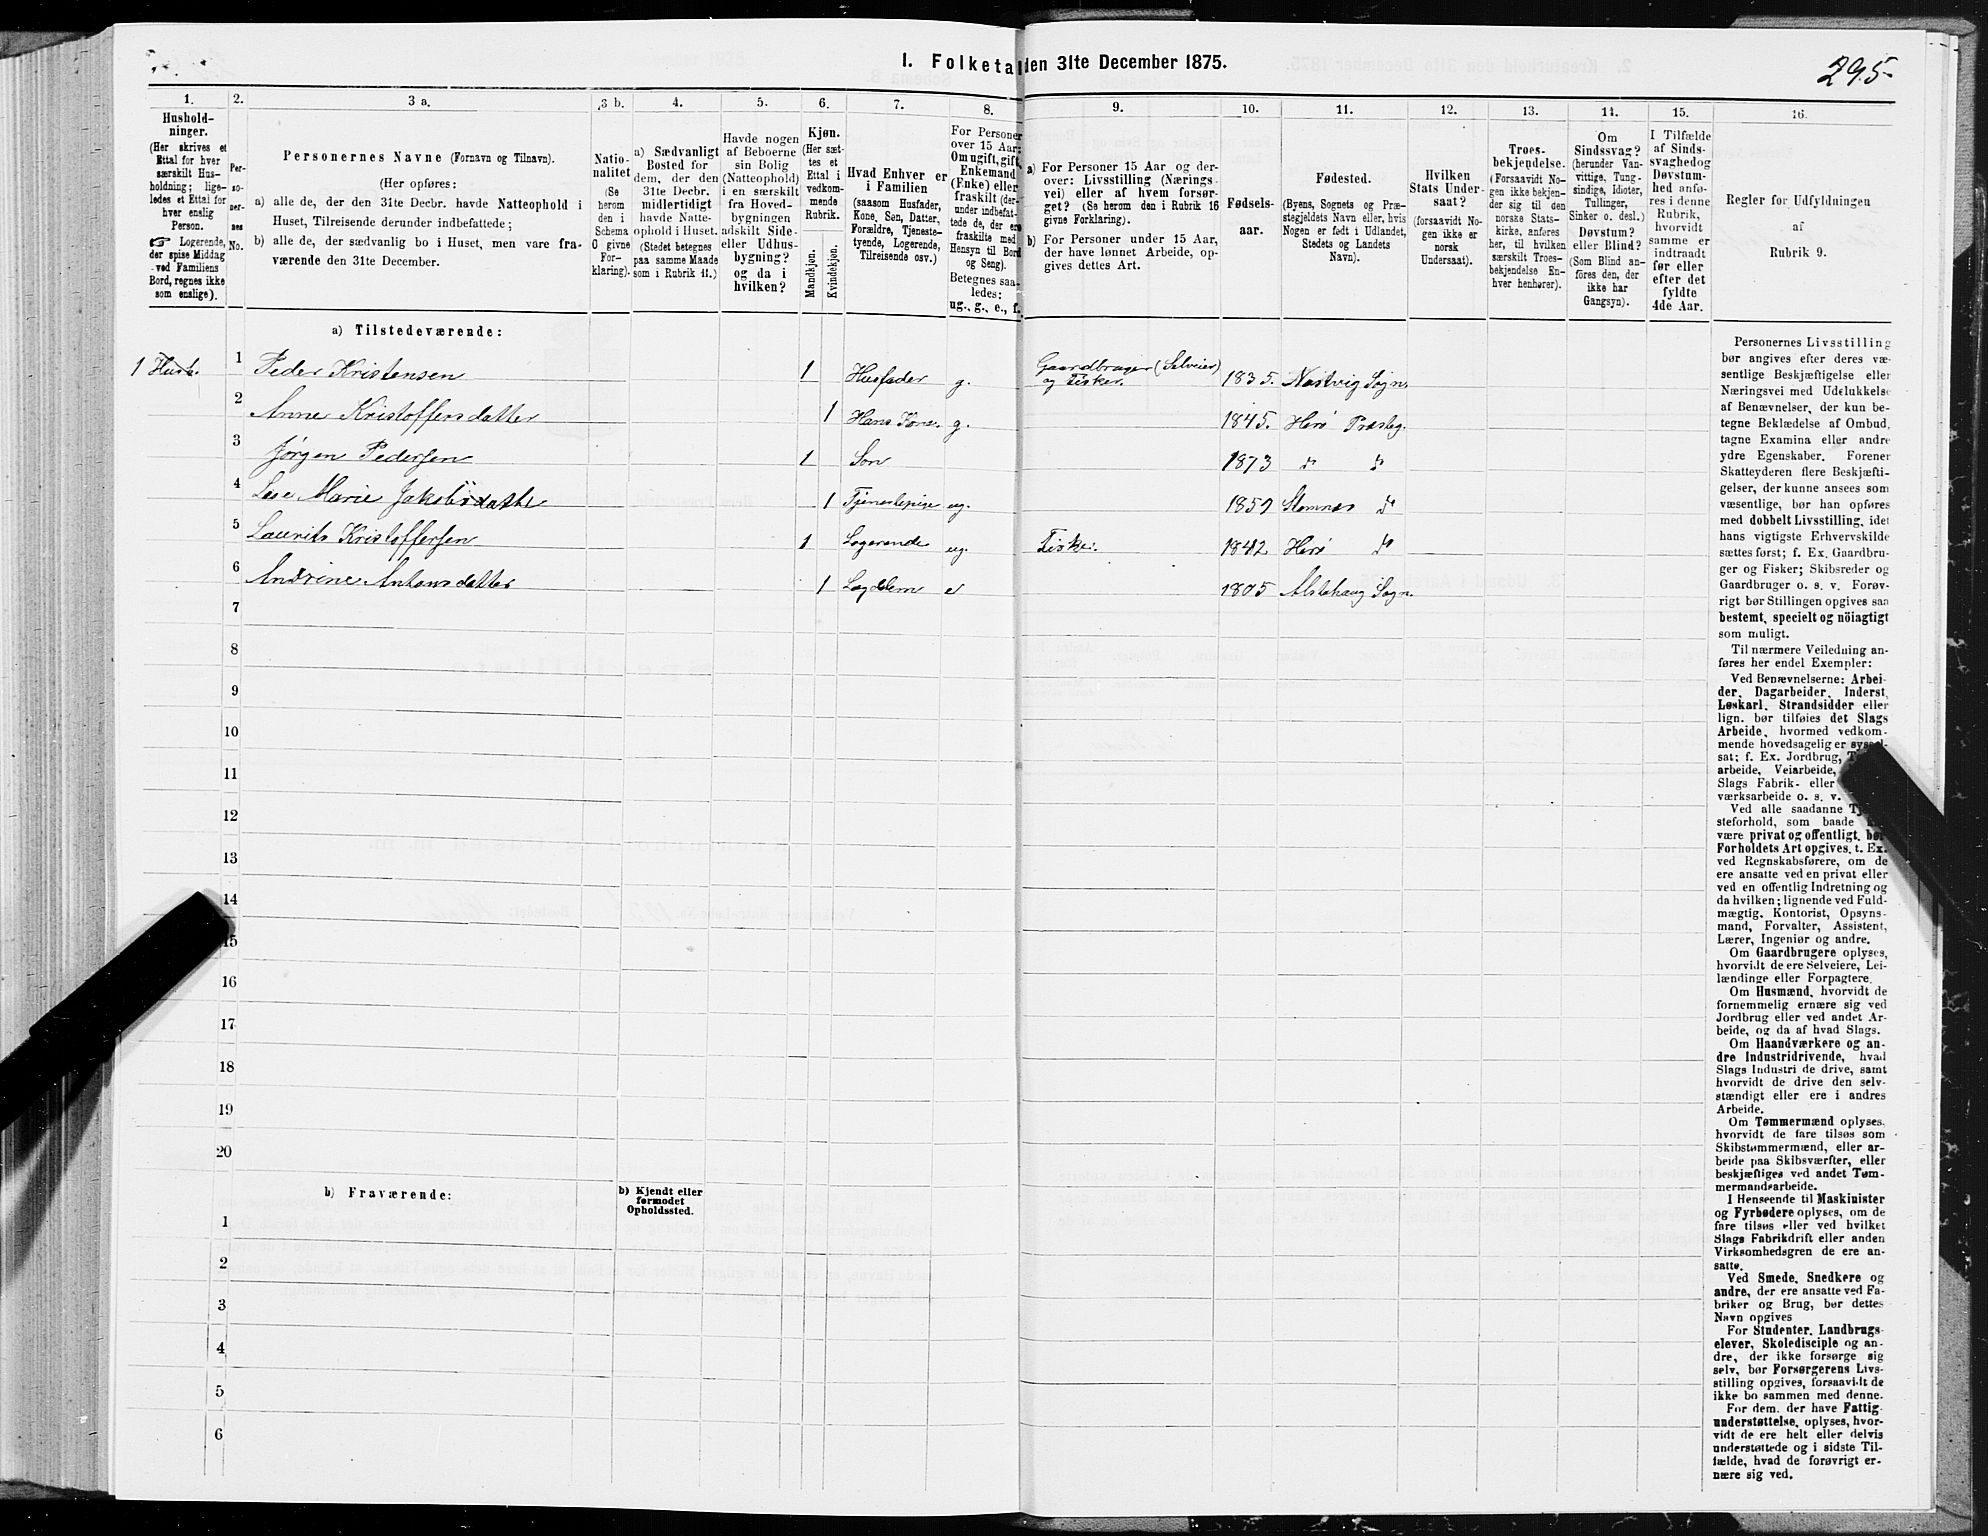 1. Folketal den 31te December 1875.
295.
1. 2. 3 a. 3 b. 4. 5. 6. 7. 8. 9. 10. 11. 12. 13. 14. 15. 16.
Hushold-
ninger.
(Her skrives et
Ettal for hver
særskilt Hus-
holdning; lige-
ledes et Ettal for
hver enslig
Person.
☞ Logerende,
der spise Middag
ved Familiens
Bord, regnes ikke
som enslige).
Per-
so-
ner-
nes
No.
Personernes Navne (Fornavn og Tilnavn).
(Her opføres:
a) alle de, der den 31te Decbr. havde Natteophold i
Huset, Tilreisende derunder indbefattede;
b) alle de, der sædvanlig bo i Huset, men vare fra-
værende den 31te December.
Natio-
nalitet
(Se
herom
den i
Schema
O givne
For-
klaring).
a) Sædvanligt
Bosted for
dem, der den
31te Decbr.
midlertidigt
havde Natte-
ophold i Huset.
(Stedet betegnes
paa samme Maade
som i Rubrik 11.)
Havde nogen
af Beboerne
sin Bolig
(Natteophold)
i en særskilt
fra Hoved-
bygningen
adskilt Side-
eller Udhus-
bygning?
og da i
hvilken?
Kjøn.
(Her sæt-
tes et
Ettal i
vedkom-
mende
Rubrik.
Mandkjøn.
Kvindekjøn.
Hvad Enhver er
i Familien
(saasom Husfader,
Kone, Søn, Datter,
Forældre, Tjeneste-
tyende, Logerende,
Tilreisende osv.)
For Personer
over 15 Aar:
Om ugift, gift,
Enkemand
(Enke) eller
fraskilt (der-
under indbefat-
tede de, der ere
fraskilte med
Hensyn til Bord
og Seng).
Betegnes saa-
ledes:
ug., g., e., f.
a) For Personer 15 Aar og der-
over: Livsstilling (Nærings-
vei) eller af hvem forsør-
get? (Se herom den i Rubrik 16
givne Forklaring).
b) For Personer under 15 Aar,
der have lønnet Arbeide, op-
gives dettes Art.
Fødsels-
aar.
Fødested.
(Byens, Sognets og Præ-
stegjeldets Navn eller, hvis
Nogen er født i Udlandet,
Stedets og Landets
Navn).
Hvilken
Stats Under-
saat?
(forsaavidt No-
gen ikke er
norsk
Undersaat).
Troes-
bekjendelse.
(Forsaavidt No-
gen ikke bekjen-
der sig til den
norske Stats-
kirke, anføres
her, til hvilken
særskilt Troes-
bekjendelse En-
hver henhører).
Om
Sindssvag?
(herunder Van-
vittige, Tung-
sindige, Idioter,
Tullinger,
Sinker o. desl.)
Døvstum?
eller Blind?
(Som Blind an-
føres den, der
ikke har
Gangsyn).
I Tilfælde
af Sinds-
svaghedog
Døvstum-
hed anfø-
res i denne
Rubrik,
hvorvidt
samme er
indtraadt
før eller
efter det
fyldte
4de Aar.
Regler for Udfyldningen
af
Rubrik 9.
a) Tilstedeværende:
1 Husb. 1 Peder Kristensen 1 Husfader g. Gaardbruger (Selveier) og Fisker. 1835. Næstvig Sogn
2 Anne Kristoffersdatter 1 Hans Kone. g. 1845. Herø Præsteg.
3 Jørgen Pedersen 1 Søn 1873 " "
4 Marie Jakobsdatte 1 Tjenestepige ug. Stamnæs do
5 Laurits Kristoffersen 1 Logerende ug. Fisker. 1842 Herø do
6 Andrine Antonsdatter 1 Lægdslem e 1805 Alstahaug Sogn.
7
8
9
10
11
12
13
14
15
16
17
18
19
20
b) Fraværende:
b) Kjendt eller
formodet
Opholdssted.
1
2
3
4
5
6
Personernes Livsstilling
bør angives efter deres væ-
sentlige Beskjæftigelse eller
Næringsvei med Udelukkelse
af Benævnelser, der kun be-
tegne Beklædelse af Ombud,
tagne Examina eller andre
ydre Egenskaber. Forener
Skatteyderen flere Beskjæfti-
gelser, der kunne ansees som
væsentlige, bør han opføres
med dobbelt Livsstilling, idet
hans vigtigste Erhvervskilde
sættes først; f. Ex. Gaardbru-
ger og Fisker; Skibsreder og
Gaardbruger o. s. v. Forøv-
rigt bør Stillingen opgives saa
bestemt, specielt og nöiagtigt
som muligt.
Til nærmere Veiledning an-
føres her endel Exempler:
Ved Benævnelserne: Arbei-
der, Dagarbeider, Inderst,
Løskarl, Strandsidder eller
lign. bør tilføies det Slags
Arbeide, hvormed vedkom-
mende hovedsagelig er syssel-
sat; f. Ex. Jordbrug,
arbeide, Veiarbeide,
Slags Fabrik- eller
værksarbeide o. s. v.
Ved alle saadanne
steforhold, som baade
være privat og offentligt, bør
Forholdets Art opgives, t. Ex.
ved Regnskabsførere, om de
ere ansatte ved en privat eller
ved en offentlig Indretning og
da hvilken; lignende ved Fuld-
mægtig, Kontorist, Opsyns-
mand, Forvalter, Assistent,
Lærer, Ingeniør og andre.
Om Gaardbrugere oplyses,
hvorvidt de ere Selveiere, Lei-
lændinge eller Forpagtere.
Om Husmænd, hvorvidt de
fornemmelig ernære sig ved
Jordbrug eller ved andet Ar-
beide, og da af hvad Slags.
Om Haandværkere og an-
dre Industridrivende, hvad
Slags Industri de drive, samt
hvorvidt de drive den selv-
stændigt eller ere i andres
Arbeide.
Om Tømmermænd oplyses,
hvorvidt de fare tilsøs som
Skibstømmermænd, eller ar-
beide paa Skibsværfter, eller
beskjæftiges ved andet Tøm-
mermandsarbeide.
I Henseende til Maskinister
og Fyrbødere oplyses, om de
fare tilsøs eller ved hvilket
Slags Fabrikdrift eller anden
Virksomhedsgren de ere an-
satte.
Ved Smede, Snedkere og
andre, der ere ansatte ved Fa-
briker og Brug, bør dettes
Navn opgives
For Studenter, Landbrugs-
elever, Skoledisciple og an-
dre, der ikke forsørge sig
selv, bør Forsørgerens Livs-
stilling opgives, forsaavidt de
ikke bo sammen med denne.
For dem, der have Fattig-
understøttelse, oplyses, hvor-
vidt de ere helt eller delvis
understøttede og i sidste Til-
fælde, hvad de forøvrigt er-
nære sig ved.